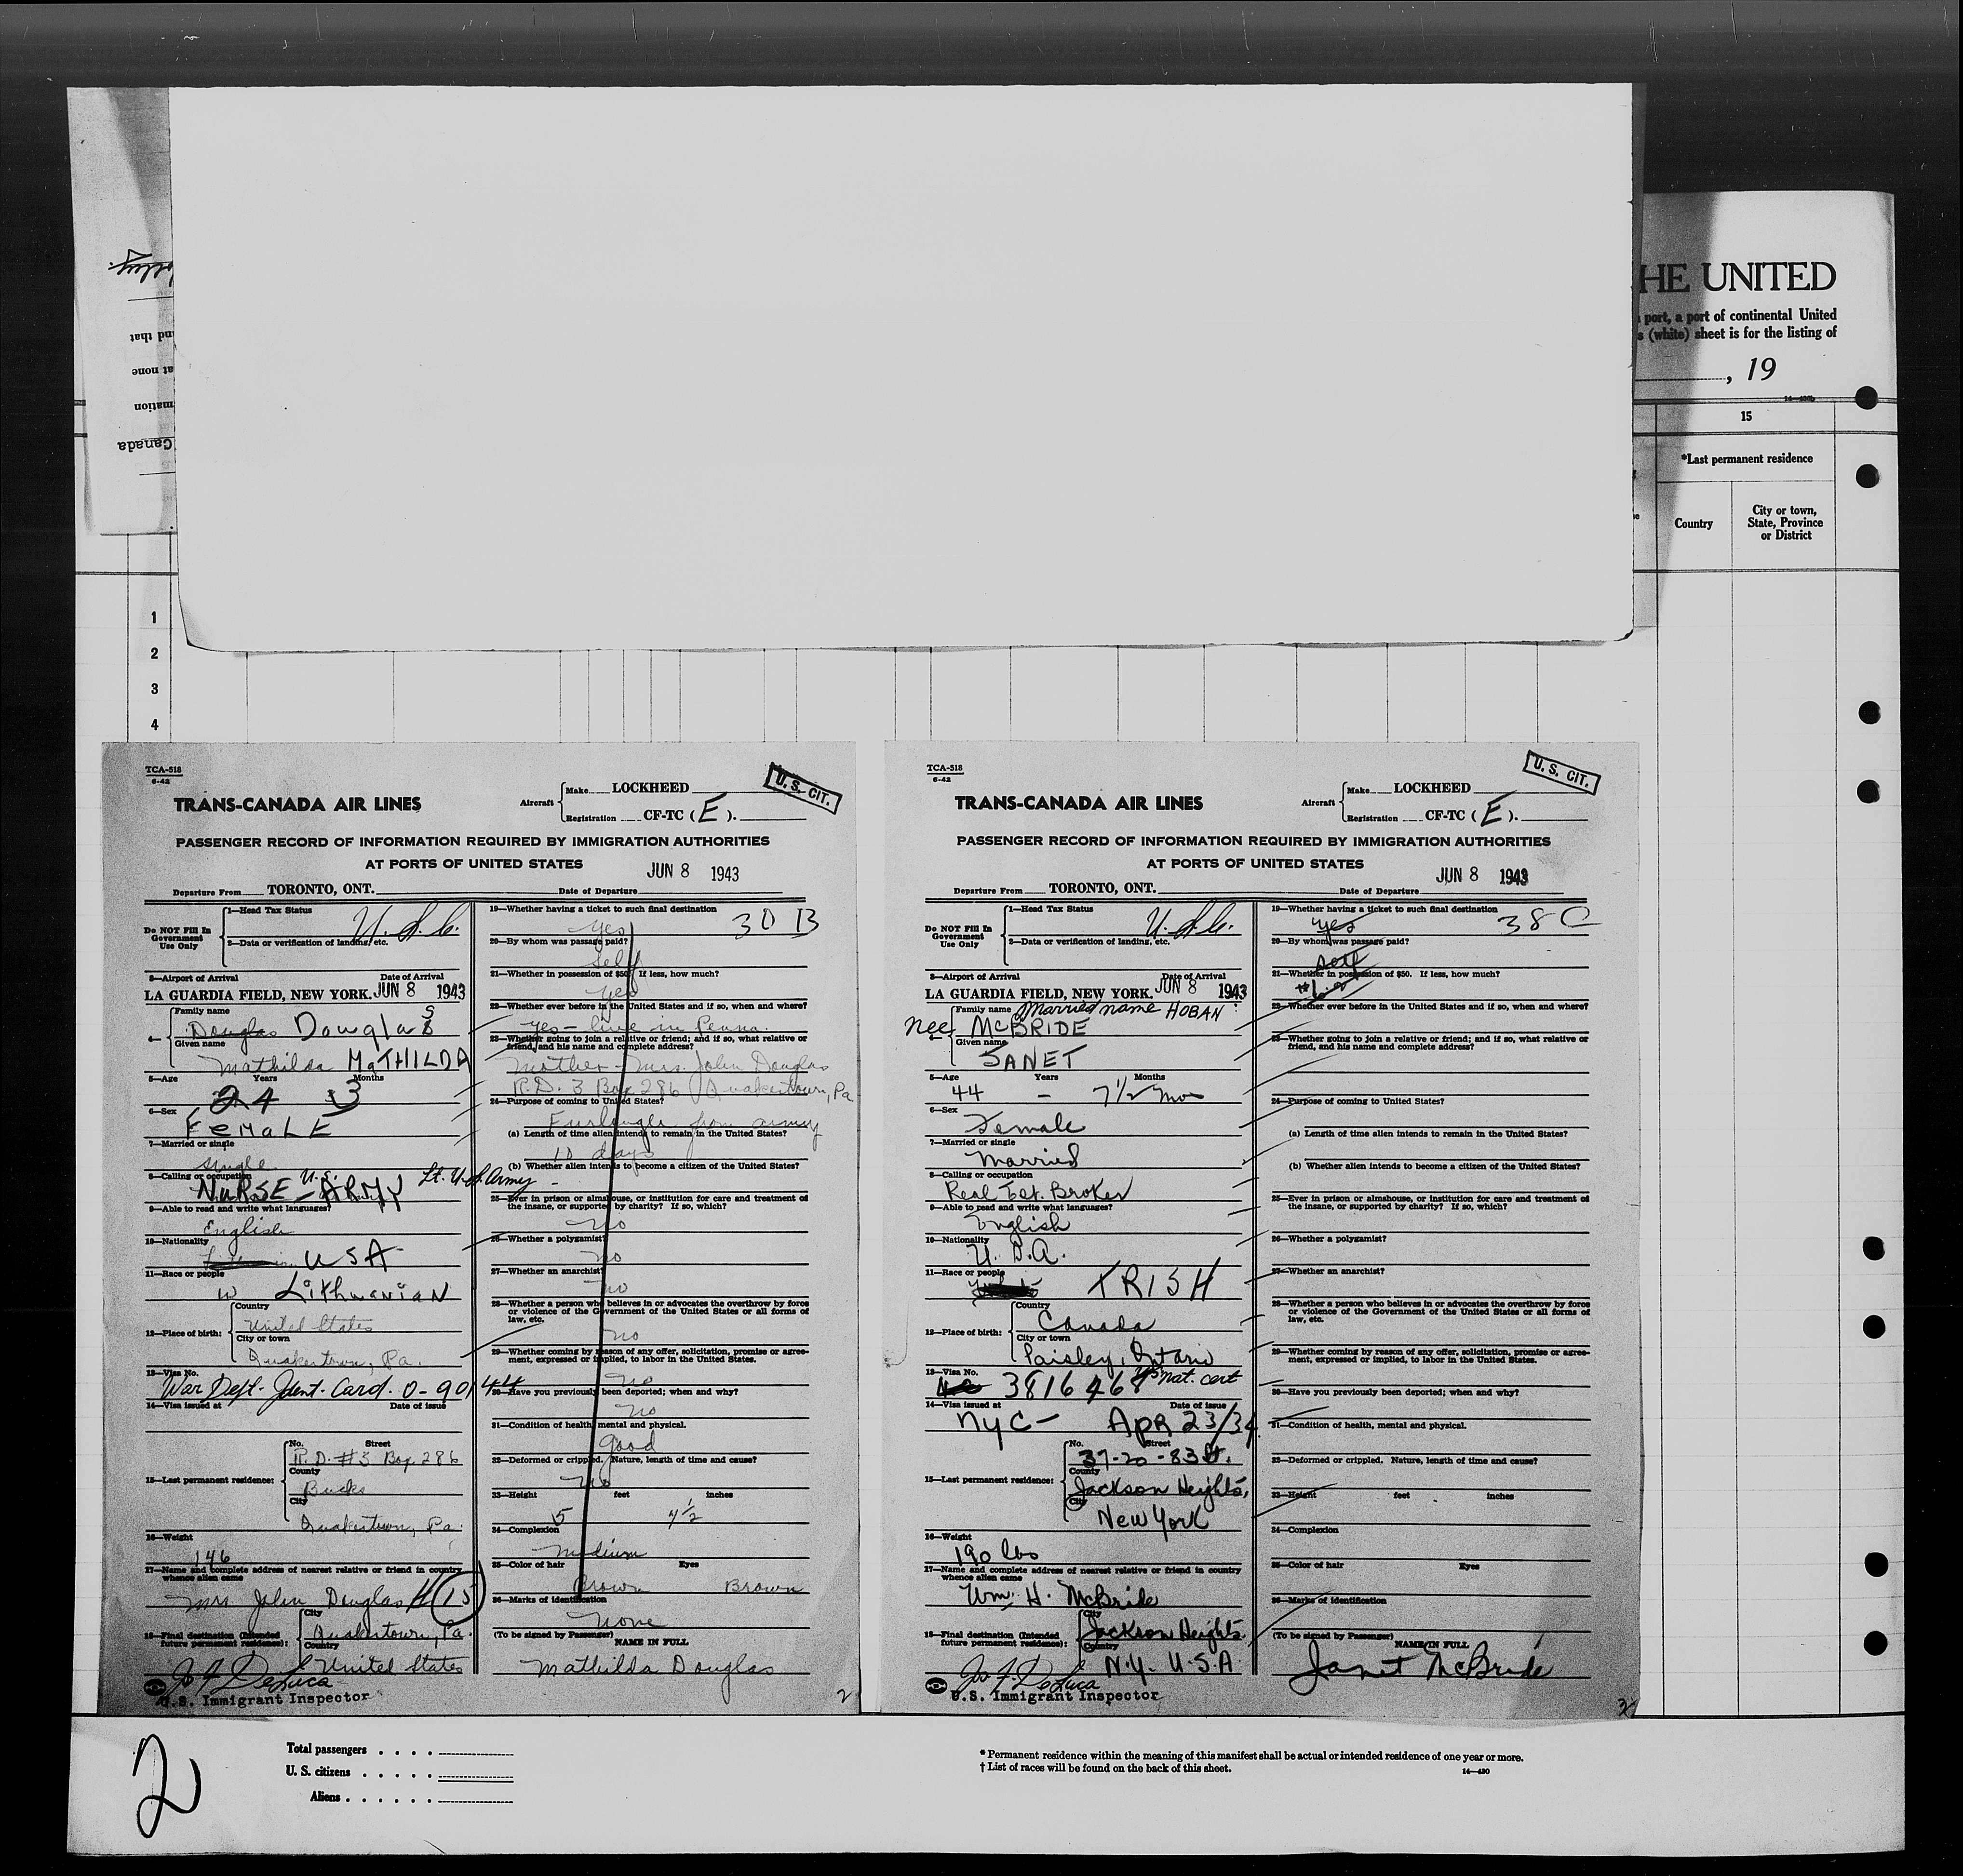 HE UNITED
port, a port of continental United
s (white) sheet is for the listing of
, 19
15
*Last permanent residence
Country
City or town,
State, Province
or District
nd that
at none
mation
Canada
1
2
3
4
TCA-518
6-42
TRANS-CANADA AIR LINES
Aircraft
Make LOCKHEED
Registration CF-TC ( E ).
U. S. CIT.
PASSENGER RECORD OF INFORMATION REQUIRED BY IMMIGRATION AUTHORITIES
AT PORTS OF UNITED STATES
JUN 8 1943
Departure From TORONTO, ONT. Date of Departure
Do NOT Fill In
Government
Use Only
1—Head Tax Status
U.S.C.
2—Data or verification of landing, etc.
3—Airport of Arrival Date of Arrival
LA GUARDIA FIELD, NEW YORK. JUN 8 1943
4— Family name
Douglas Douglas
Given name
Mathilda MATHILDA
5—Age Years Months
24 3
6—Sex
FEMALE
7—Married or single
Single
8—Calling or occupation
NURSE - U.S. ARMY Lt. U.S. Army -
9—Able to read and write what languages?
English
10—Nationality
USA
11—Race or people
W Lithuanian
12—Place of birth:
Country
United States
City or town
Quakertown, Pa.
13—Visa No.
War Dept. Ident. Card. O-901444
14—Visa issued at Date of issue
15—Last permanent residence:
No. Street
R.D. #3 Box 286
County
Bucks
City
Quakertown, Pa.
16—Weight
146
17—Name and complete address of nearest relative or friend in country
whence alien came
Mrs John Douglas H 15
18—Final destination (Intended
future permanent residence):
City
Quakertown, Pa.
Country
United States
Jos F DeLuca
U.S. Immigrant Inspector
19—Whether having a ticket to such final destination
yes 30 B
20—By whom was passage paid?
Self
21—Whether in possession of $50. If less, how much?
yes
22—Whether ever before in the United States and if so, when and where?
yes - live in Penna.
23—Whether going to join a relative or friend; and if so, what relative or
friend, and his name and complete address?
Mother - Mrs. John Douglas
R.D. 3 Box 286 Quakertown, Pa
24—Purpose of coming to United States?
Furlough from army
(a) Length of time alien intends to remain in the United States?
10 days
(b) Whether alien intends to become a citizen of the United States?
25—Ever in prison or almshouse, or institution for care and treatment of
the insane, or supported by charity? If so, which?
no
26—Whether a polygamist?
no
27—Whether an anarchist?
no
28—Whether a person who believes in or advocates the overthrow by force
or violence of the Government of the United States or all forms of
law, etc.
no
29—Whether coming by reason of any offer, solicitation, promise or agree-
ment, expressed or implied, to labor in the United States.
no
30—Have you previously been deported; when and why?
no
31—Condition of health, mental and physical.
good
32—Deformed or crippled. Nature, length of time and cause?
no
33—Height feet inches
5 4½
34—Complexion
Medium
35—Color of hair Eyes
Brown Brown
36—Marks of identification
None
(To be signed by Passenger)
NAME IN FULL
Mathilda Douglas
2
TCA-518
6-42
TRANS-CANADA AIR LINES
Aircraft
Make LOCKHEED
Registration CF-TC ( E ).
U. S. CIT.
PASSENGER RECORD OF INFORMATION REQUIRED BY IMMIGRATION AUTHORITIES
AT PORTS OF UNITED STATES
JUN 8 1943
Departure From TORONTO, ONT. Date of Departure
Do NOT Fill In
Government
Use Only
1—Head Tax Status
U.S.C.
2—Data or verification of landing, etc.
3—Airport of Arrival Date of Arrival
LA GUARDIA FIELD, NEW YORK. JUN 8 1943
4— Family name Married name HOBAN
nee McBRIDE
Given name
JANET
5—Age Years Months
44 - 7½ mos
6—Sex
Female
7—Married or single
Married
8—Calling or occupation
Real Est. Broker
9—Able to read and write what languages?
English
10—Nationality
U.S.A.
11—Race or people
IRISH
12—Place of birth:
Country
Canada
City or town
Paisley, Ontario
13—Visa No.
3816468 US Nat. cert
14—Visa issued at Date of issue
NYC - APR 23/34
15—Last permanent residence:
No. Street
37-20-83 St.
County
Jackson Heights,
City
New York
16—Weight
190 lbs
17—Name and complete address of nearest relative or friend in country
whence alien came
Wm. H. McBride
18—Final destination (Intended
future permanent residence):
City
Jackson Heights
Country
N.Y. U.S.A.
Jos F. DeLuca
U.S. Immigrant Inspector
19—Whether having a ticket to such final destination
yes 38 C
20—By whom was passage paid?
self
21—Whether in possession of $50. If less, how much?
22—Whether ever before in the United States and if so, when and where?
23—Whether going to join a relative or friend; and if so, what relative or
friend, and his name and complete address?
24—Purpose of coming to United States?
(a) Length of time alien intends to remain in the United States?
(b) Whether alien intends to become a citizen of the United States?
25—Ever in prison or almshouse, or institution for care and treatment of
the insane, or supported by charity? If so, which?
26—Whether a polygamist?
27—Whether an anarchist?
28—Whether a person who believes in or advocates the overthrow by force
or violence of the Government of the United States or all forms of
law, etc.
29—Whether coming by reason of any offer, solicitation, promise or agree-
ment, expressed or implied, to labor in the United States.
30—Have you previously been deported; when and why?
31—Condition of health, mental and physical.
32—Deformed or crippled. Nature, length of time and cause?
33—Height feet inches
34—Complexion
35—Color of hair Eyes
36—Marks of identification
(To be signed by Passenger)
NAME IN FULL
Janet McBride
2
Total passengers . . . .
U. S. citizens . . . . .
Aliens . . . . . .
* Permanent residence within the meaning of this manifest shall be actual or intended residence of one year or more.
† List of races will be found on the back of this sheet.
14—430